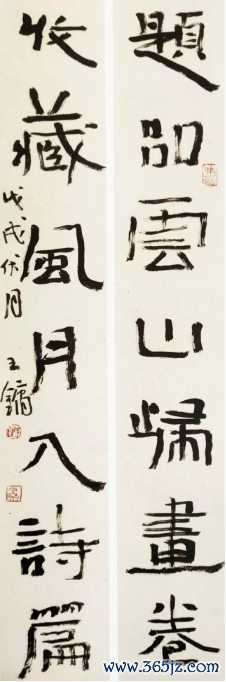 題品雲山歸畫卷
收藏風月入詩篇
戊戌伏月
王鏞
www.365jz.com